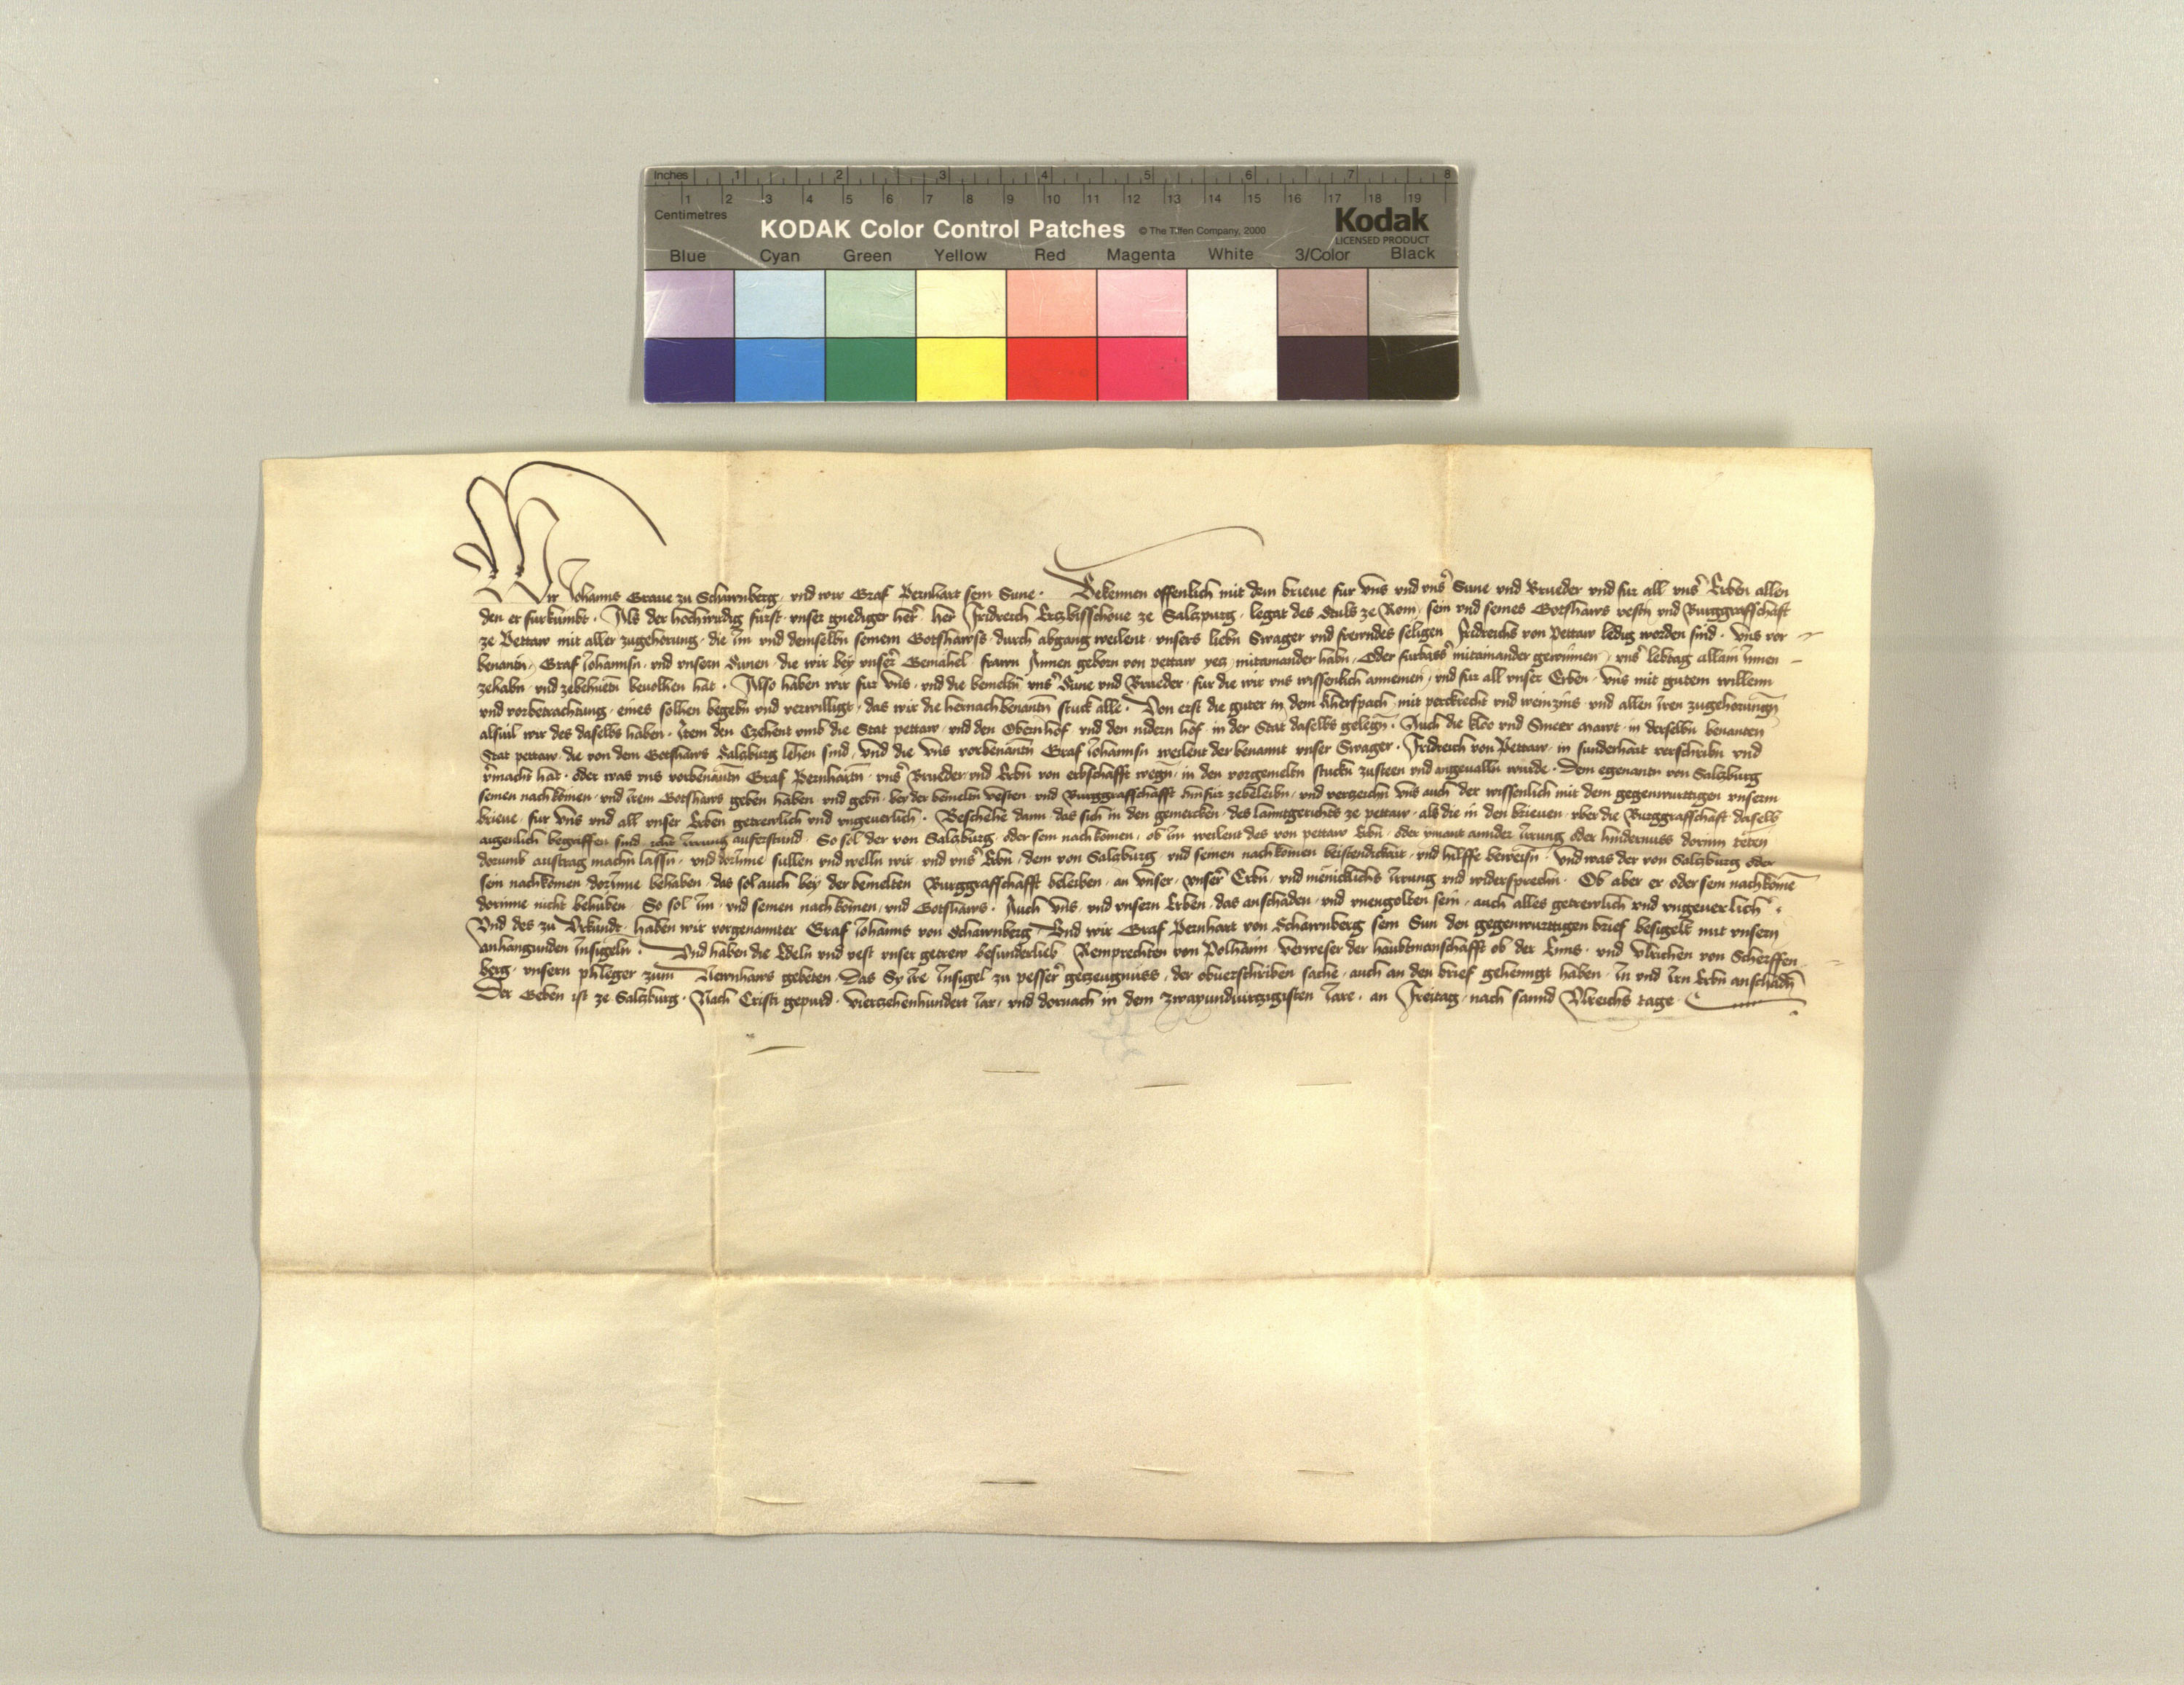 Inches 1 2 3 4 5 6 7 8
1 2 3 4 5 6 7 8 9 10 11 12 13 14 15 16 17 18 19
Centimetres
KODAK Color Control Patches © The Tiffen Company, 2000 Kodak
LICENSED PRODUCT
Blue Cyan Green Yellow Red Magenta White 3/Color Black
Wir Johanns Graue zu Schawnberg, vnd wir Graf Bernhart sein Sune. Bekennen offenlich mit dem brieue fur vns vnd vnsʼ Sune vnd Brueder vnd fur all vnsʼ Erben allen
den er furkumbt. Als der hochwirdig furst, vnser gnediger herʼ her Fridreich Ertzbisschoue ze Salczpurg, legat des Stuls ze Rom, sein vnd seines Gotshaws vestn vnd Burggrafschaft
ze Pettaw mit aller zugehorung, die Im vnd demselbn seinem Gotshawss durch abgang weilent, vnsers liebn Swager vnd frewndes seligen Fridreichs von Pettaw ledig worden sind. Vns vor
benantn, Graf Johannsn, vnd vnsern Sunen, die wir bey vnserʼ Gemahel, frawn Annen geborn von pettaw yez mitainander habn, Oder furbassʼ mitainander gewinnen, vnsʼ lebtag allain Innen
zehabn, vnd zebehuetn beuolhen hat. Also haben wir fur vns, vnd die bemeltn vnsʼ Sune vnd Brueder, fur die wir vns wissenlich annemen, vnd fur all vnser Erben, vns mit gutem willenn
vnd vorbetrachtung, eines solhen begebn vnd verwilligt, das wir die hernachbenantn stuck alle. Von erst die guter in dem Ahelspach, mit perckrecht vnd weinzins vnd allen iren zugehorungn
alsuil wir des daselbs haben. Item den Czehent vmb die Stat pettaw, vnd den Obernhof vnd den nidern hof in der Stat daselbs gelegn. Auch die kleo vnd Smeer mawt in derselbn benanten
Stat pettaw, die von dem Gotshaws Salczburg lehen sind, vnd die vns vorbenantn Graf Johannsn weilent der benannt vnser Swager. Fridreich von Pettaw, in sunderhait verschribn vnd
vʼmacht hat, oder was vns vorbenantn Graf Bernhartn, vnsʼ Brueder vnd Erbn von erbschafft wegn, in den vorgemeltn stuckn zusteen vnd angeualln wurde. Dem egenantn von Salczburg
seinen nachkomen, vnd irem Gotshaws geben haben vnd gebn, bey der bemeltn vesten, vnd Burggrafschafft hinfur zebeleibn, vnd verzeichn vns auch der wissenlich mit dem gegenwurttigen vnserm
brieue, fur vns vnd all vnser Erben getrewlich vnd vngeuerlich. Beschehe dann, das sich in den gemercken, des lanntgerichts ze pettaw, als die in den brieuen, vber die Burggrafschaft daselb
augenlich begriffen sind, icht irrung auferstund. So sol der von Salczburg, oder sein nachkomen, ob Im weilent des von pettaw Erbn, oder ymant annder irrung oder hindernuss dorinn teten
dorumb austrag machn lassn, vnd dorinne sullen vnd welln wir, vnd vnsʼ Erbn, dem von Salczburg, vnd seinen nachkomen beistendickait, vnd hilffe beweisn. Vnd was der von Salczburg oder
sein nachkomen dorinne behaben, das sol auch bey der bemelten Burggrafschafft beleiben, an vnser, vnserʼ Erbn, vnd menicklichs irrung vnd widersprechn. Ob aber er oder sein nachkomē
dorinne nicht behaben. So sol Im, vnd seinen nachkomen, vnd Gotshaws. Auch vns, vnd vnsern Erben, das anschaden, vnd vnengolten sein, auch alles getrewlich vnd vngeuerlich.
Vnd des zu Vrkundt, haben wir vorgenannter Graf Johanns von Schawnberg Vnd wir Graf Pernhart von Schawnberg sein Sun den gegenwurttigen brief besigelt mit vnsern
anhangunden Insigeln. Vnd haben die Edeln vnd vest vnser getrew besunderlieb Remprechten von Polhaim, verweser der haubtmanschafft ob der Enns, vnd Vlrichen von Scherffen
berg, vnsern phleger zum Newnhaws gebeten, Das Sy Ire Insigel zu pesserʼ getzeugnuss, der obuerschriben sache, auch an den brief gehenngt haben, In vnd Irn Erbn anschadn
Der Geben ist ze Salczburg. Nach Cristi gepurd, vierzehenhundert Jar, vnd dornach in dem zwayundvirzigisten Jare, an Freitag, nach sannd Vlreichs tage